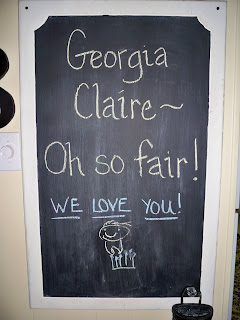 Georgia
Claire~
Oh so fair!
WE LOVE YOU!